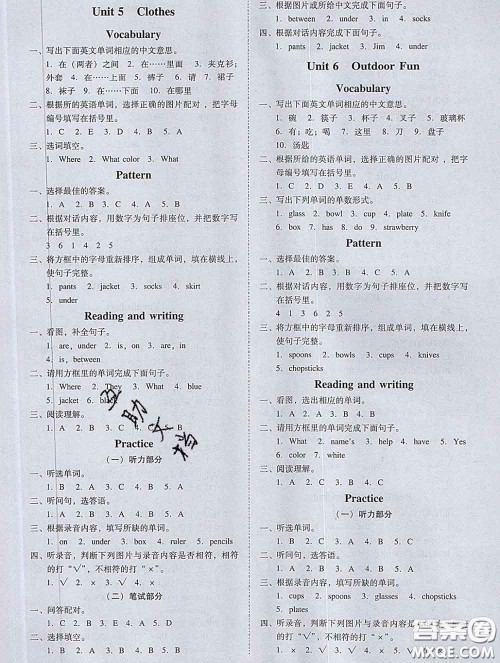 Unit 5 Clothes
Vocabulary
一、写出下面英文单词相应的中文意思。
1. 在（两者）之间 2. 在……里面 3. 夹克衫;
外套 4. 在……上面 5. 裤子 6. 请 7. 裙子
8. 袜子 9. 在……下面 10. 在哪里
二、根据所给的英语单词，选择正确的图片配对，把字母
编号填写在括号里。
1. C 2. E 3. D 4. B 5. A
三、选词填空。
1. Where 2. What color 3. What
Pattern
一、选择最佳的答案。
二、根据对话内容，用数字为句子排座位，并把数字写
在括号里。
3 6 1 4 2 5
三、将方框中的字母重新排序，组成单词，填在横线上，
使句子完整。
1. pants 2. jacket 3. socks 4. skirt
5. under
Reading and writing
一、看图，补全句子。
1. are, under 2. is, on 3. are, in
4. is, between
二、请用方框里的单词完成下面句子。
1. Where 2. They 3. What 4. blue
5. jacket 6. black
三、阅读理解。
1. B 2. A 3. B 4. C 5.
Practice
（一）听力部分
一、听选单词。
1. B 2. A 3. C 4. B 5. A
二、听问句，选答语。
1. B 2. A 3. C 4. A 5. C
三、根据录音内容，填写所缺的单词。
1. on 2. under 3. box 4. ruler 5. pencils
四、听录音，判断下列图片与录音内容是否相符，相符
的打“√”，不相符的打“×”。
1. √ 2. × 3. × 4. √ 5. √
（二）笔试部分
一、问答配对。
1. C 2. A 3. D 4. B
二、选择填空。
二、根据图片或所给中文完成下面句子。
1. between 2. under 3. in 4. on
三、根据对话内容完成下面句子。
1. pants 2. jacket 3. Jim 4. under
Unit 6 Outdoor Fun
Vocabulary
一、写出下面英文单词相应的中文意思。
1. 碗 2. 筷子 3. 杯子 4. 叉子 5. 玻璃杯
6. 有; 吃; 喝 7. 这里 8. 刀 9. 盘子
10. 汤匙
二、根据所给的英语单词，选择正确的图片配对，把字
母编号填写在括号里。
1. C 2. D 3. E 4. A 5. B
三、写出下列单词的单数形式。
1. glass 2. bowl 3. cup 4. plate 5. knife
6. box 7. has 8. do 9. strawberry
Pattern
一、选择最佳的答案。
1. A 2. B 3. B 4. B 5. A
二、根据对话内容，用数字为句子排座位，并把数字写
在括号里。
4 1 3 6 2 5
三、将方框中的字母重新排序，组成单词，填在横线上，
使句子完整。
1. spoons 2. bowls 3. cups 4. knives
5. chopsticks
Reading and writing
一、看图，选出相应的单词。
1. A 2. B 3. A 4. B 5. A
二、请用方框里的单词完成下面句子。
1. What 2. name's 3. help 4. have 5. Yes
6. What color 7. yellow
三、阅读理解。
1. C 2. A 3. B 4. C
Practice
（一）听力部分
一、听选单词。
1. B 2. A 3. B 4. A 5. C
二、听问句，选答语。
1. A 2. C 3. B 4. A 5. C
三、根据录音内容，填写所缺的单词。
1. spoons 2. have 3. on 4. chopsticks
四、听录音，判断下列图片与录音内容是否相符，相符
的打“√”，不相符的打“×”。
1. √ 2. × 3. √ 4. √
互助文档
答案圈
MXQE.COM